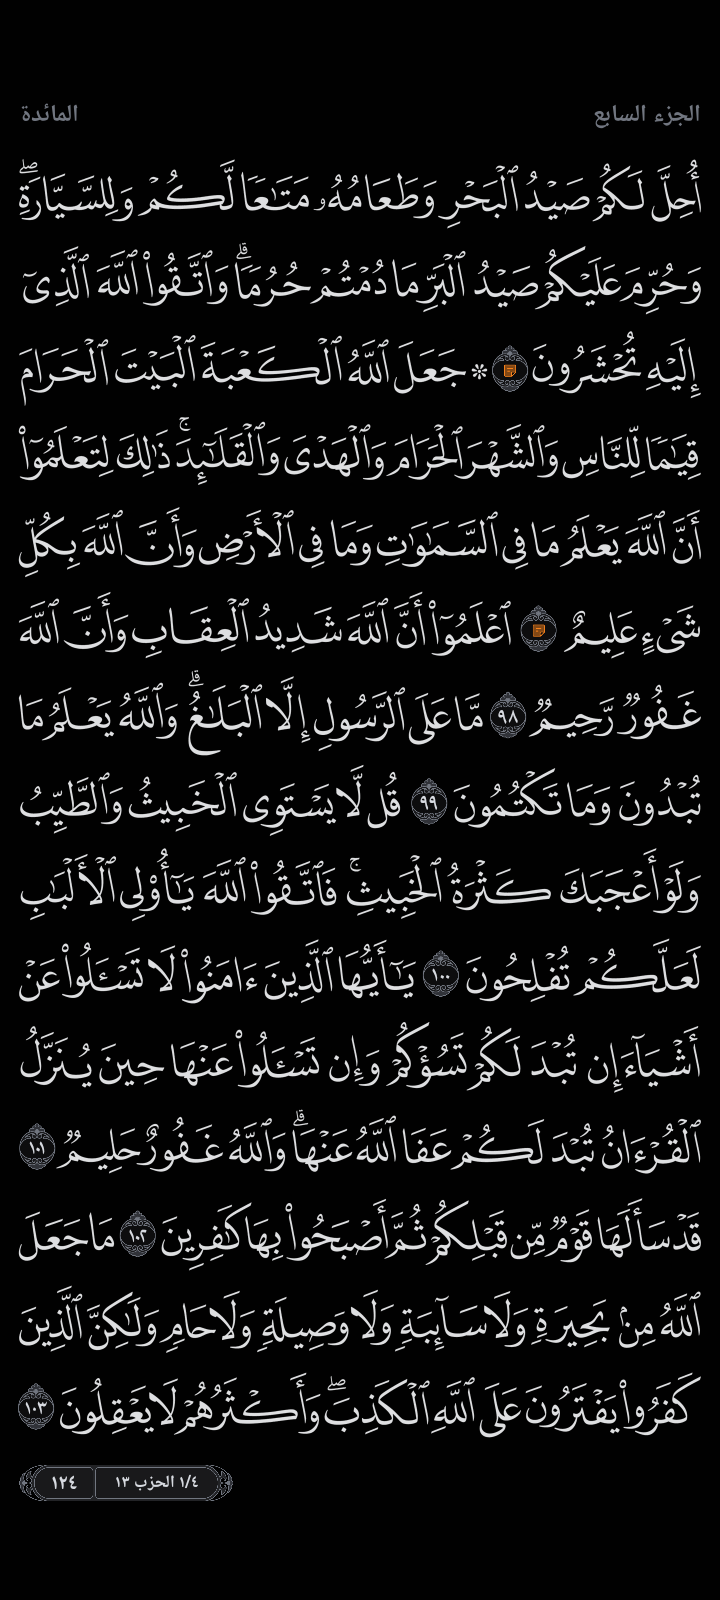 الجزء السابع
المائدة
أُحِلَّ لَكُمۡ صَيۡدُ ٱلۡبَحۡرِ وَطَعَامُهُۥ مَتَٰعٗا لَّكُمۡ وَلِلسَّيَّارَةِۖ
وَحُرِّمَ عَلَيۡكُمۡ صَيۡدُ ٱلۡبَرِّ مَا دُمۡتُمۡ حُرُمٗاۗ وَٱتَّقُواْ ٱللَّهَ ٱلَّذِيٓ
إِلَيۡهِ تُحۡشَرُونَ * جَعَلَ ٱللَّهُ ٱلۡكَعۡبَةَ ٱلۡبَيۡتَ ٱلۡحَرَامَ
قِيَٰمٗا لِّلنَّاسِ وَٱلشَّهۡرَ ٱلۡحَرَامَ وَٱلۡهَدۡيَ وَٱلۡقَلَٰٓئِدَۚ ذَٰلِكَ لِتَعۡلَمُوٓاْ
أَنَّ ٱللَّهَ يَعۡلَمُ مَا فِي ٱلسَّمَٰوَٰتِ وَمَا فِي ٱلۡأَرۡضِ وَأَنَّ ٱللَّهَ بِكُلِّ
شَيۡءٍ عَلِيمٌ ٱعۡلَمُوٓاْ أَنَّ ٱللَّهَ شَدِيدُ ٱلۡعِقَابِ وَأَنَّ ٱللَّهَ
غَفُورٞ رَّحِيمٞ ٩٨ مَّا عَلَى ٱلرَّسُولِ إِلَّا ٱلۡبَلَٰغُۗ وَٱللَّهُ يَعۡلَمُ مَا
تُبۡدُونَ وَمَا تَكۡتُمُونَ ٩٩ قُل لَّا يَسۡتَوِي ٱلۡخَبِيثُ وَٱلطَّيِّبُ
وَلَوۡ أَعۡجَبَكَ كَثۡرَةُ ٱلۡخَبِيثِۚ فَٱتَّقُواْ ٱللَّهَ يَٰٓأُوْلِي ٱلۡأَلۡبَٰبِ
لَعَلَّكُمۡ تُفۡلِحُونَ ١٠٠ يَٰٓأَيُّهَا ٱلَّذِينَ ءَامَنُواْ لَا تَسۡـَٔلُواْ عَنۡ
أَشۡيَآءَ إِن تُبۡدَ لَكُمۡ تَسُؤۡكُمۡ وَإِن تَسۡـَٔلُواْ عَنۡهَا حِينَ يُنَزَّلُ
ٱلۡقُرۡءَانُ تُبۡدَ لَكُمۡ عَفَا ٱللَّهُ عَنۡهَاۗ وَٱللَّهُ غَفُورٌ حَلِيمٞ ١٠١
قَدۡ سَأَلَهَا قَوۡمٞ مِّن قَبۡلِكُمۡ ثُمَّ أَصۡبَحُواْ بِهَا كَٰفِرِينَ ١٠٢ مَا جَعَلَ
ٱللَّهُ مِنۢ بَحِيرَةٖ وَلَا سَآئِبَةٖ وَلَا وَصِيلَةٖ وَلَا حَامٖ وَلَٰكِنَّ ٱلَّذِينَ
كَفَرُواْ يَفۡتَرُونَ عَلَى ٱللَّهِ ٱلۡكَذِبَۖ وَأَكۡثَرُهُمۡ لَا يَعۡقِلُونَ ١٠٣
١/٤ الحزب ١٣
١٢٤